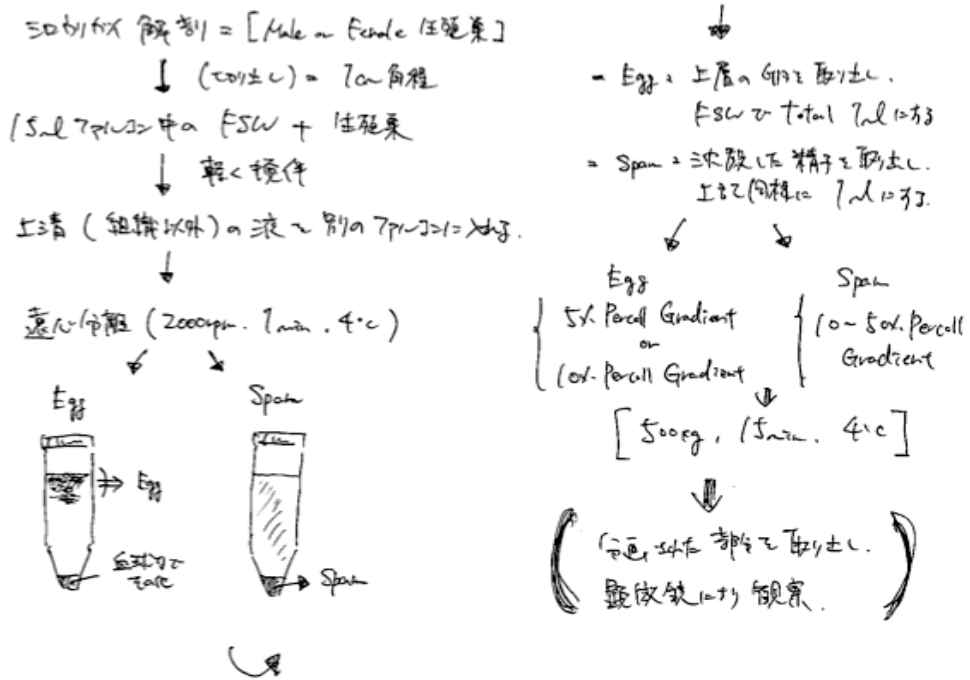 シロウリガイ 解剖 = [Male or Female 生殖巣]
(切り出し) = 1cm角程
15ml ファルコン中の FSW + 生殖巣
軽く攪伴
上清 (組織以外) の液を別のファルコンに入れる.
遠心分離 (2000rpm. 1min. 4℃)
Egg Sperm
Egg
Sperm
- Egg : 上層の Eggを取り出し.
FSWで total 1mlにする
= Sperm : 沈殿した精子を取り出し.
上記同様に 1mlにする.
Egg Sperm
5% Percoll Gradient
or
10% Percoll Gradient
10~50% Percoll
Gradient
[500×g, 15min. 4℃]
分画された部分を取り出し.
顕微鏡により観察.